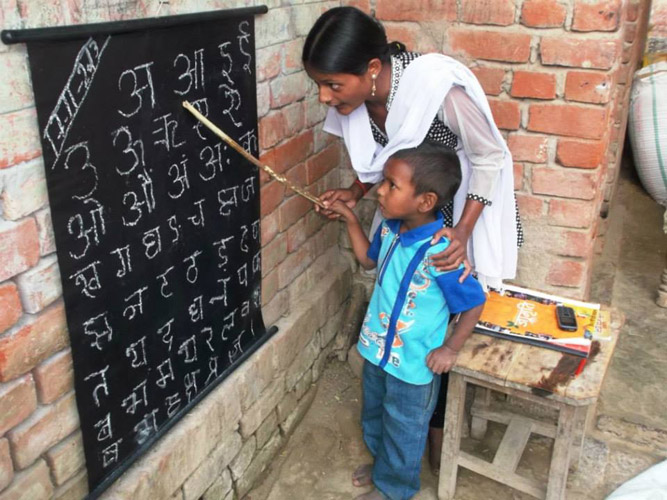 अ आ इ ई
उ ऊ ऋ ए ऐ
ओ औ अं अः क
ख ग घ ङ च छ ज
झ ञ ट ठ ड ढ ण
त थ द ध न प फ
ब भ म य र ल व
ष स ह क्ष त्र ज्ञ